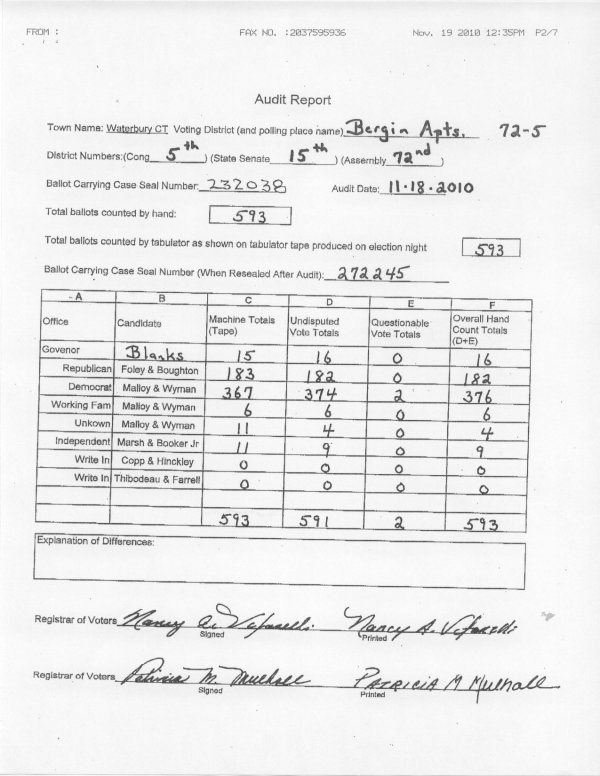 FROM : FAX NO. :2037595936 Nov. 19 2010 12:35PM P2/7
Audit Report
Town Name: Waterbury CT Voting District (and polling place name) Bergin Apts. 72-5
District Numbers:(Cong 5th ) (State Senate 15th ) (Assembly 72nd )
Ballot Carrying Case Seal Number: 232038 Audit Date: 11·18·2010
Total ballots counted by hand: 593
Total ballots counted by tabulator as shown on tabulator tape produced on election night 593
Ballot Carrying Case Seal Number (When Resealed After Audit): 272245
A B C D E F
Office Candidate Machine Totals (Tape) Undisputed Vote Totals Questionable Vote Totals Overall Hand Count Totals (D+E)
Govenor Blanks 15 16 0 16
Republican Foley & Boughton 183 182 0 182
Democrat Malloy & Wyman 367 374 2 376
Working Fam Malloy & Wyman 6 6 0 6
Unkown Malloy & Wyman 11 4 0 4
Independent Marsh & Booker Jr 11 9 0 9
Write In Copp & Hinckley 0 0 0 0
Write In Thibodeau & Farrell 0 0 0 0
593 591 2 593
Explanation of Differences:
Registrar of Voters Nancy A. Nancy A.
Signed Printed
Registrar of Voters Patricia M. Mulhall PATRICIA M Mulhall
Signed Printed